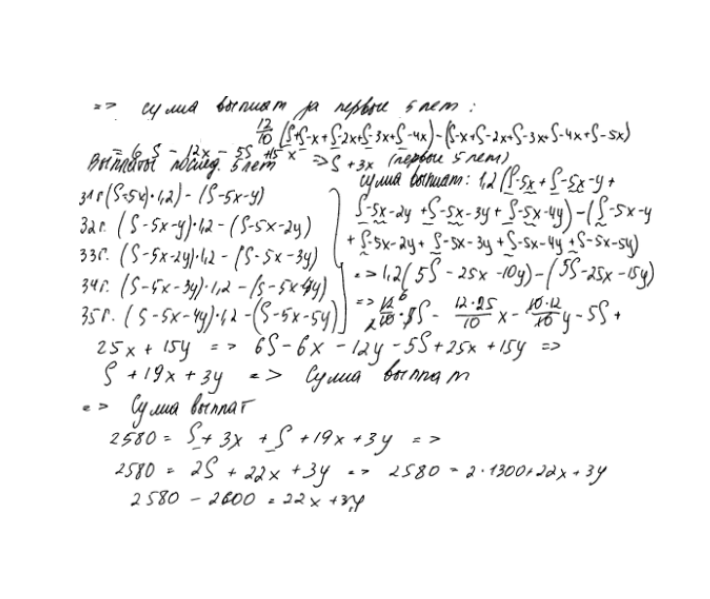 => сумма выплат за первые 5 лет :
12/10 (S+S-x+S-2x+S-3x+S-4x)-(S-x+S-2x+S-3x+S-4x+S-5x)
= 6S - 12x - 5S +15x => S + 3x (первые 5 лет)
Выплаты послед. 5 лет
31г (S-5x)·1,2) - (S-5x-y)
32г. (S-5x-y)·1,2 - (S-5x-2y)
33г. (S-5x-2y)·1,2 - (S-5x-3y)
34г. (S-5x-3y)·1,2 - (S-5x-4y)
35г. (S-5x-4y)·1,2 - (S-5x-5y)
сумма выплат: 1,2 (S-5x + S-5x-y +
S-5x-2y + S-5x-3y + S-5x-4y) - (S-5x-y
+ S-5x-2y + S-5x-3y + S-5x-4y + S-5x-5y)
=> 1,2(5S - 25x - 10y) - (5S-25x-15y)
=> 12/10 · 5S - 12·25/10 x - 10·12/10 y - 5S +
25x + 15y => 6S - 6x - 12y - 5S + 25x + 15y =>
S + 19x + 3y => Сумма выплат
=> Сумма выплат
2580 = S + 3x + S + 19x + 3y =>
2580 = 2S + 22x + 3y => 2580 = 2·1300+22x + 3y
2580 - 2600 = 22x + 3y